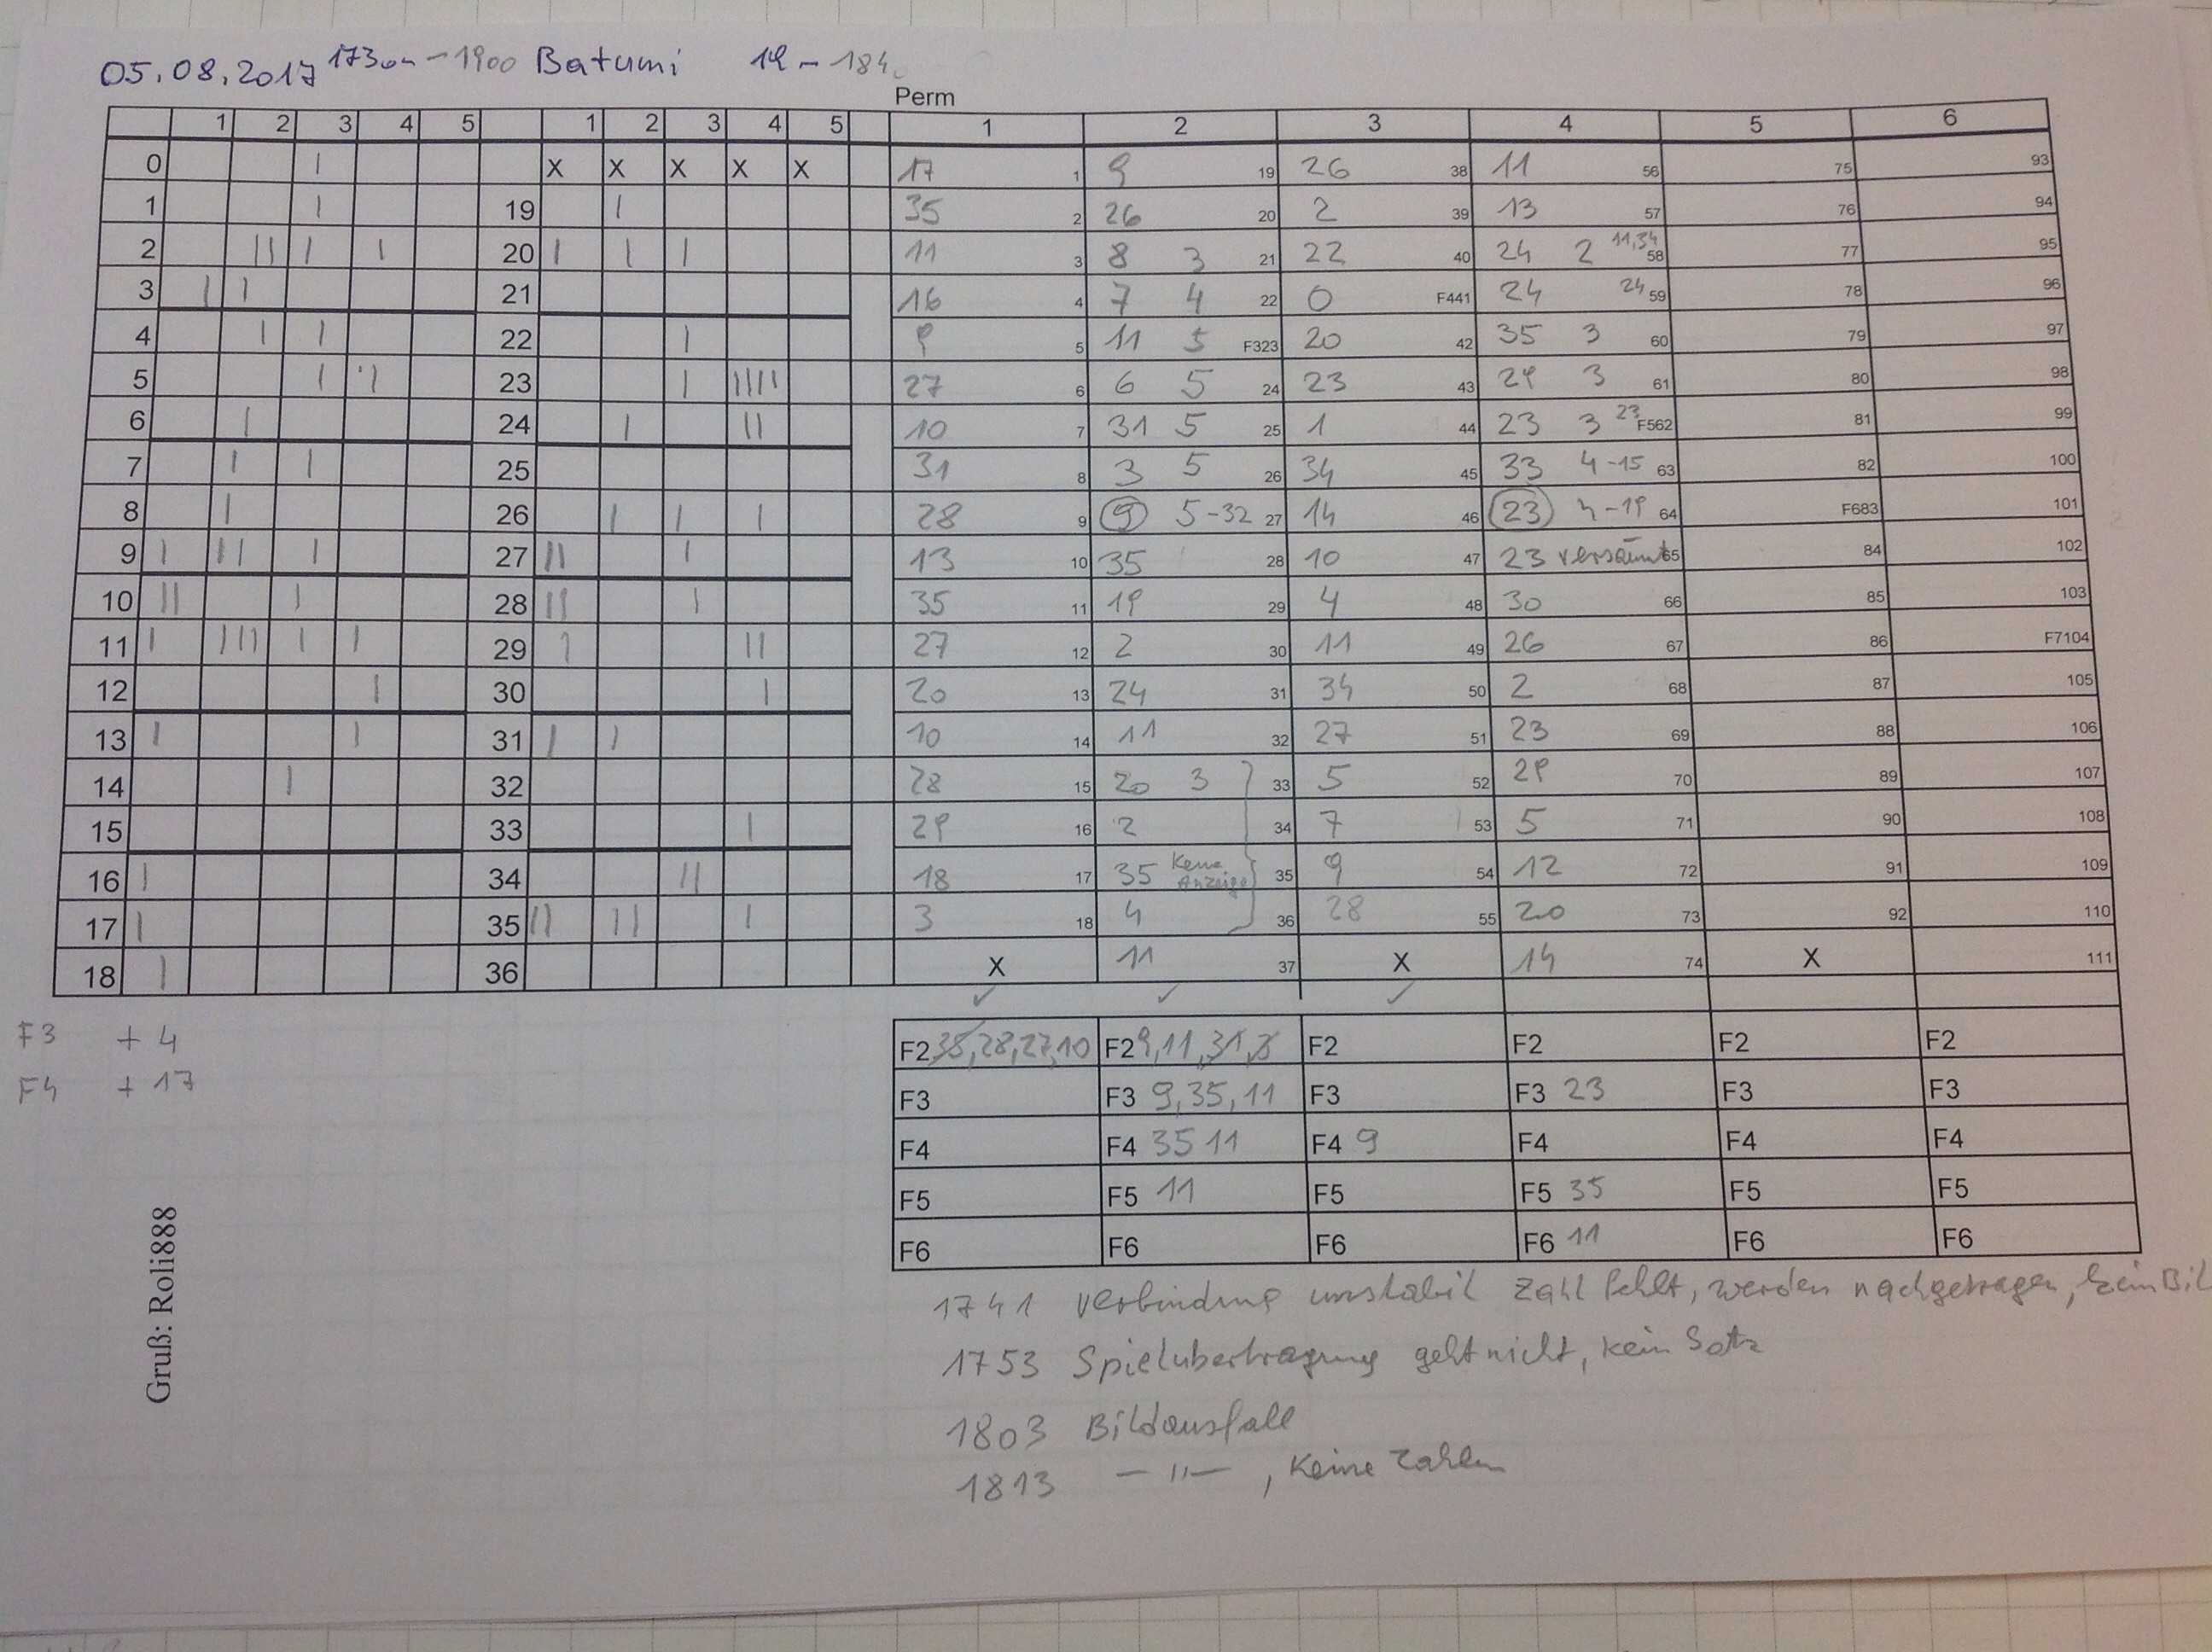 05.08.2017 1730 - 1900 Batumi 19 - 184
Perm
1 2 3 4 5 1 2 3 4 5 1 2 3 4 5 6
0 | X X X X X 17 1 9 19 26 38 11 56 75 93
1 | 19 | 35 2 26 20 2 39 13 57 76 94
2 || | | 20 | | | 11 3 8 3 21 22 40 24 2 11,34 58 77 95
3 | | 21 16 4 7 4 22 0 F441 24 24 59 78 96
4 | | 22 | 9 5 11 5 F323 20 42 35 3 60 79 97
5 | | 23 | |||| 27 6 6 5 24 23 43 29 3 61 80 98
6 | 24 | || 10 7 31 5 25 1 44 23 3 23 F562 81 99
7 | | 25 31 8 3 5 26 34 45 33 4 -15 63 82 100
8 | 26 | | | 28 9 9 5-32 27 14 46 23 4-19 64 F683 101
9 | || | 27 || | 13 10 35 28 10 47 23 versäumt 65 84 102
10 || | 28 || | 35 11 19 29 4 48 30 66 85 103
11 | ||| | | 29 | || 27 12 2 30 11 49 26 67 86 F7104
12 | 30 | 20 13 24 31 34 50 2 68 87 105
13 | | 31 | | 10 14 11 32 27 51 23 69 88 106
14 | 32 28 15 20 3 33 5 52 29 70 89 107
15 33 | 29 16 2 34 7 53 5 71 90 108
16 | 34 || 18 17 35 Keine Anzeige 35 9 54 12 72 91 109
17 | 35 || || | 3 18 4 36 28 55 20 73 92 110
18 | 36 X 11 37 X 14 74 X 111
✓ ✓ ✓
F3 + 4
F4 + 17
F2 35,28,27,10 F2 9,11,31,3 F2 F2 F2 F2
F3 F3 9,35,11 F3 F3 23 F3 F3
F4 F4 35 11 F4 9 F4 F4 F4
F5 F5 11 F5 F5 35 F5 F5
F6 F6 F6 F6 11 F6 F6
Gruß: Roli888
1741 Verbindung unstabil Zahl fehlt, werden nachgetragen, kein Bil
1753 Spielübertragung geht nicht, kein Satz
1803 Bildausfall
1813 — " — , Keine Zahlen